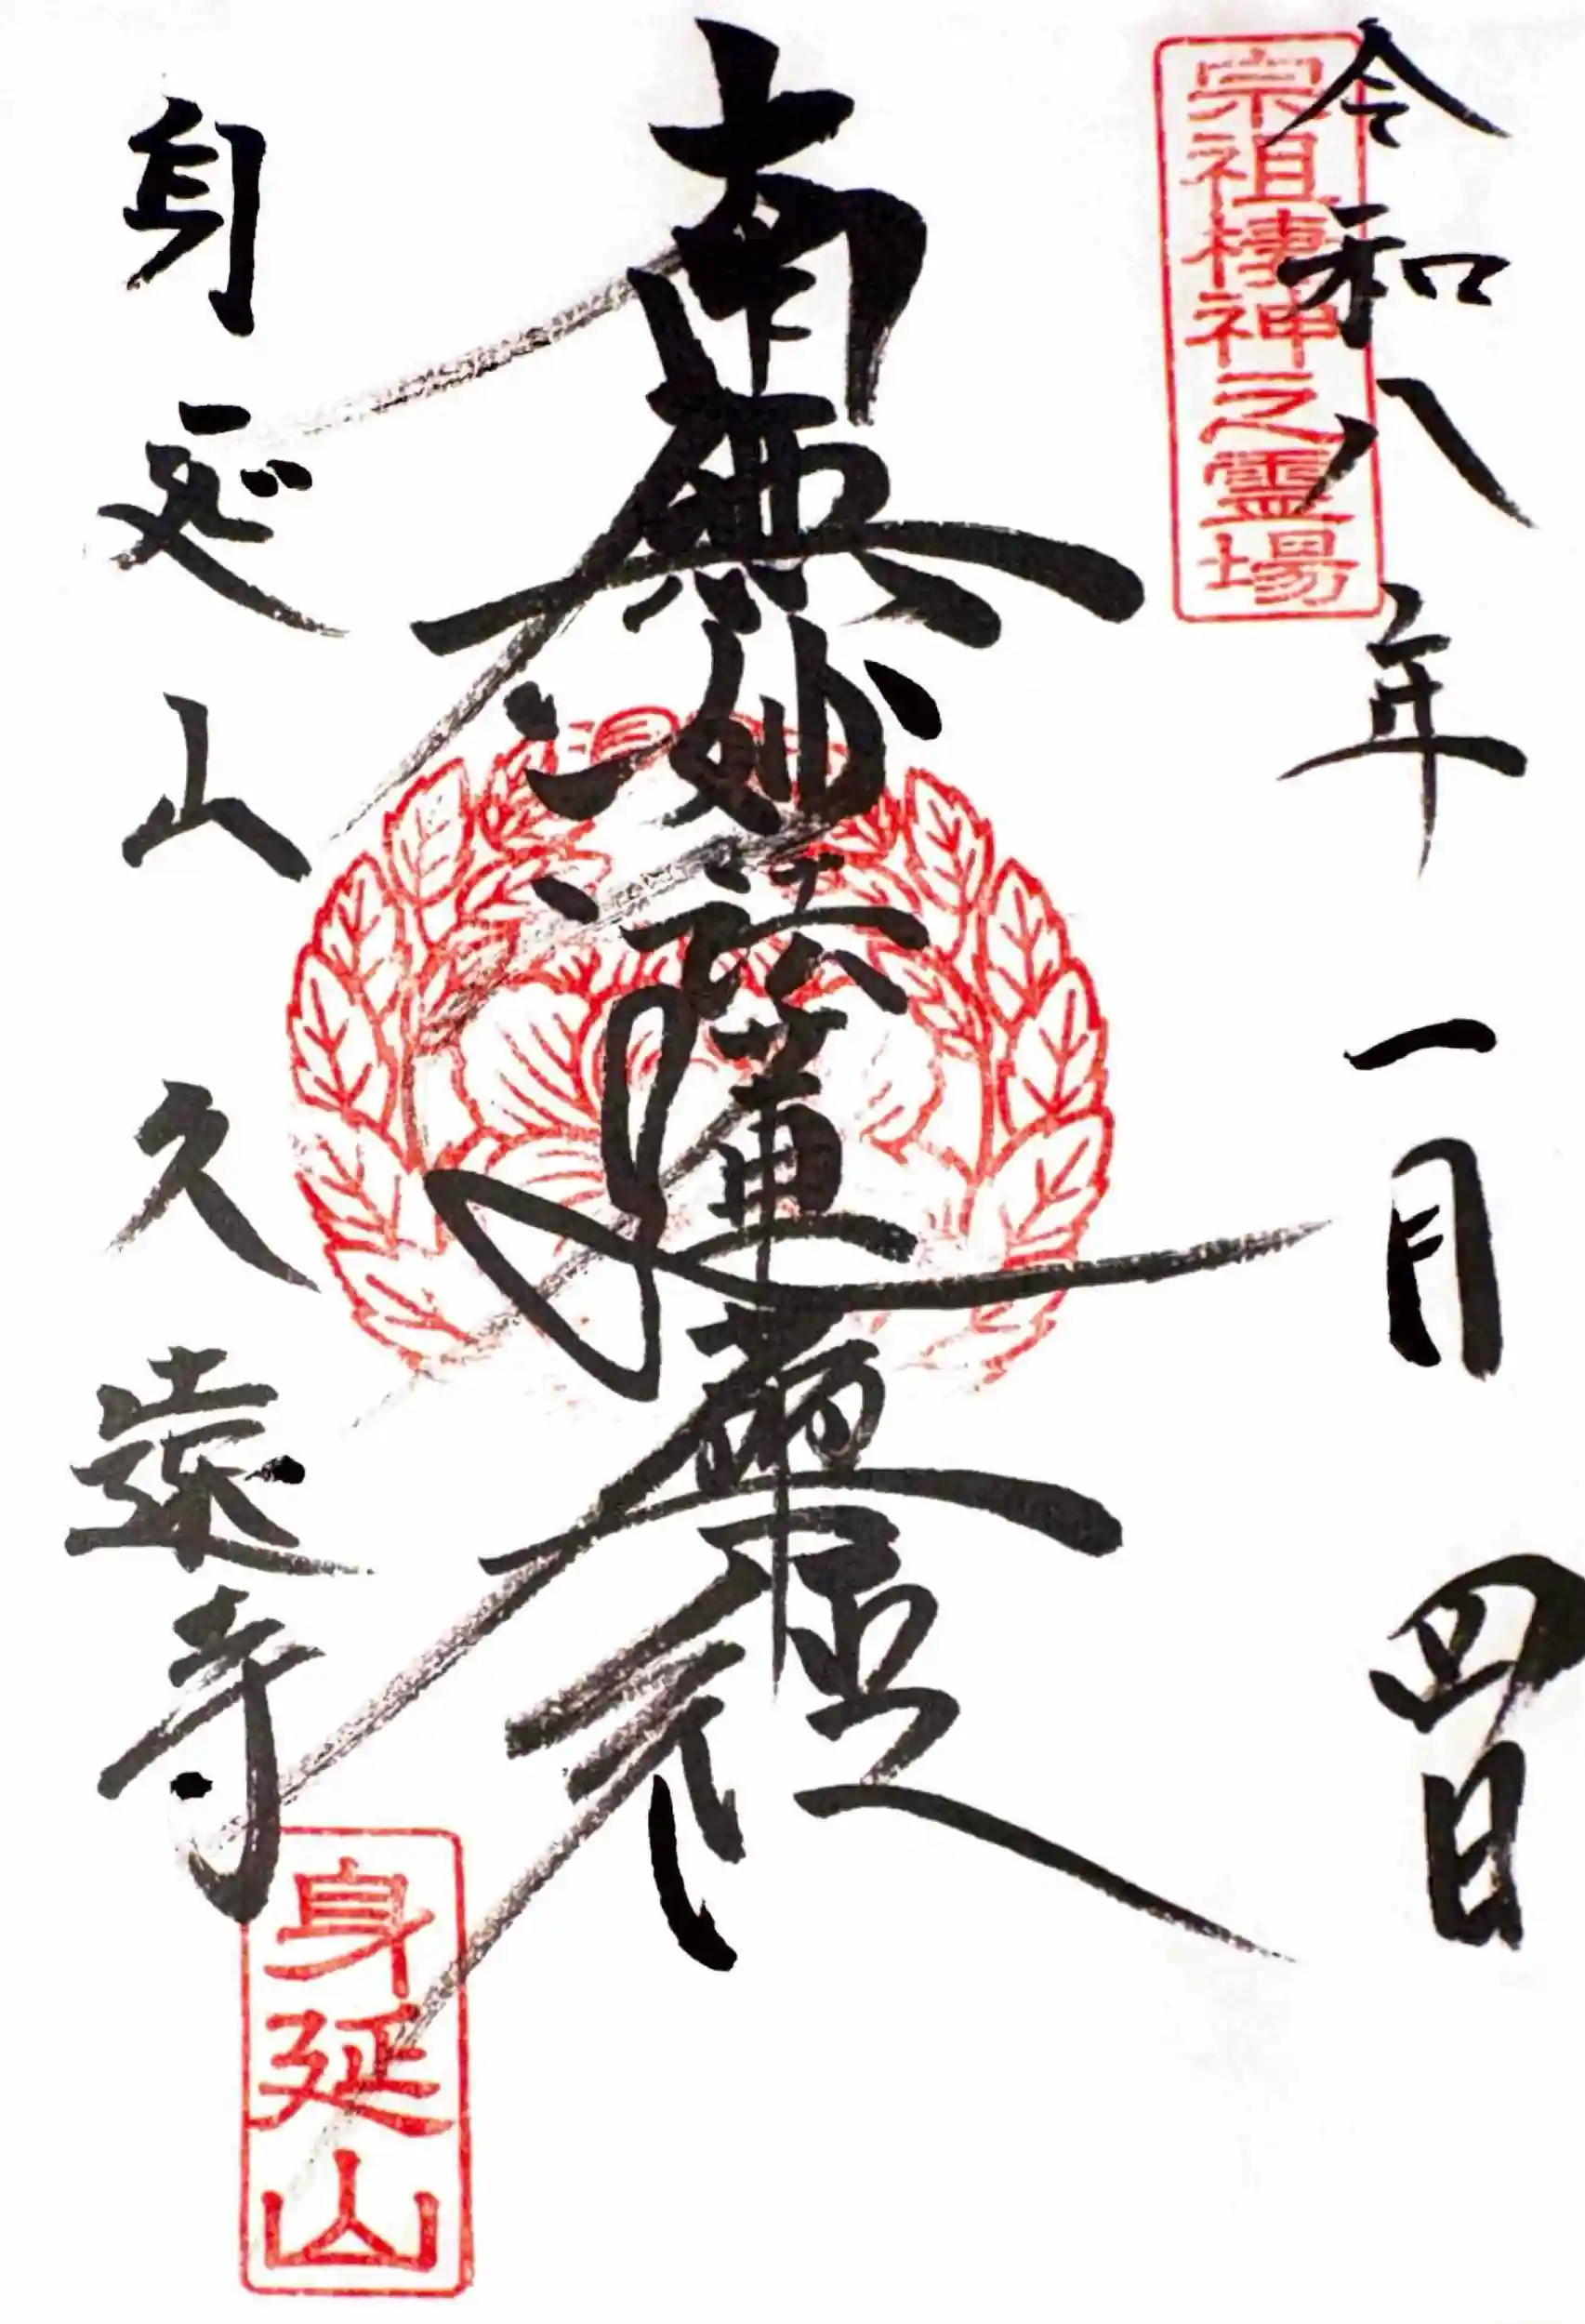 令和八年一月四日
宗祖棲神之霊場
南無妙法蓮華経
身延山久遠寺
身延山